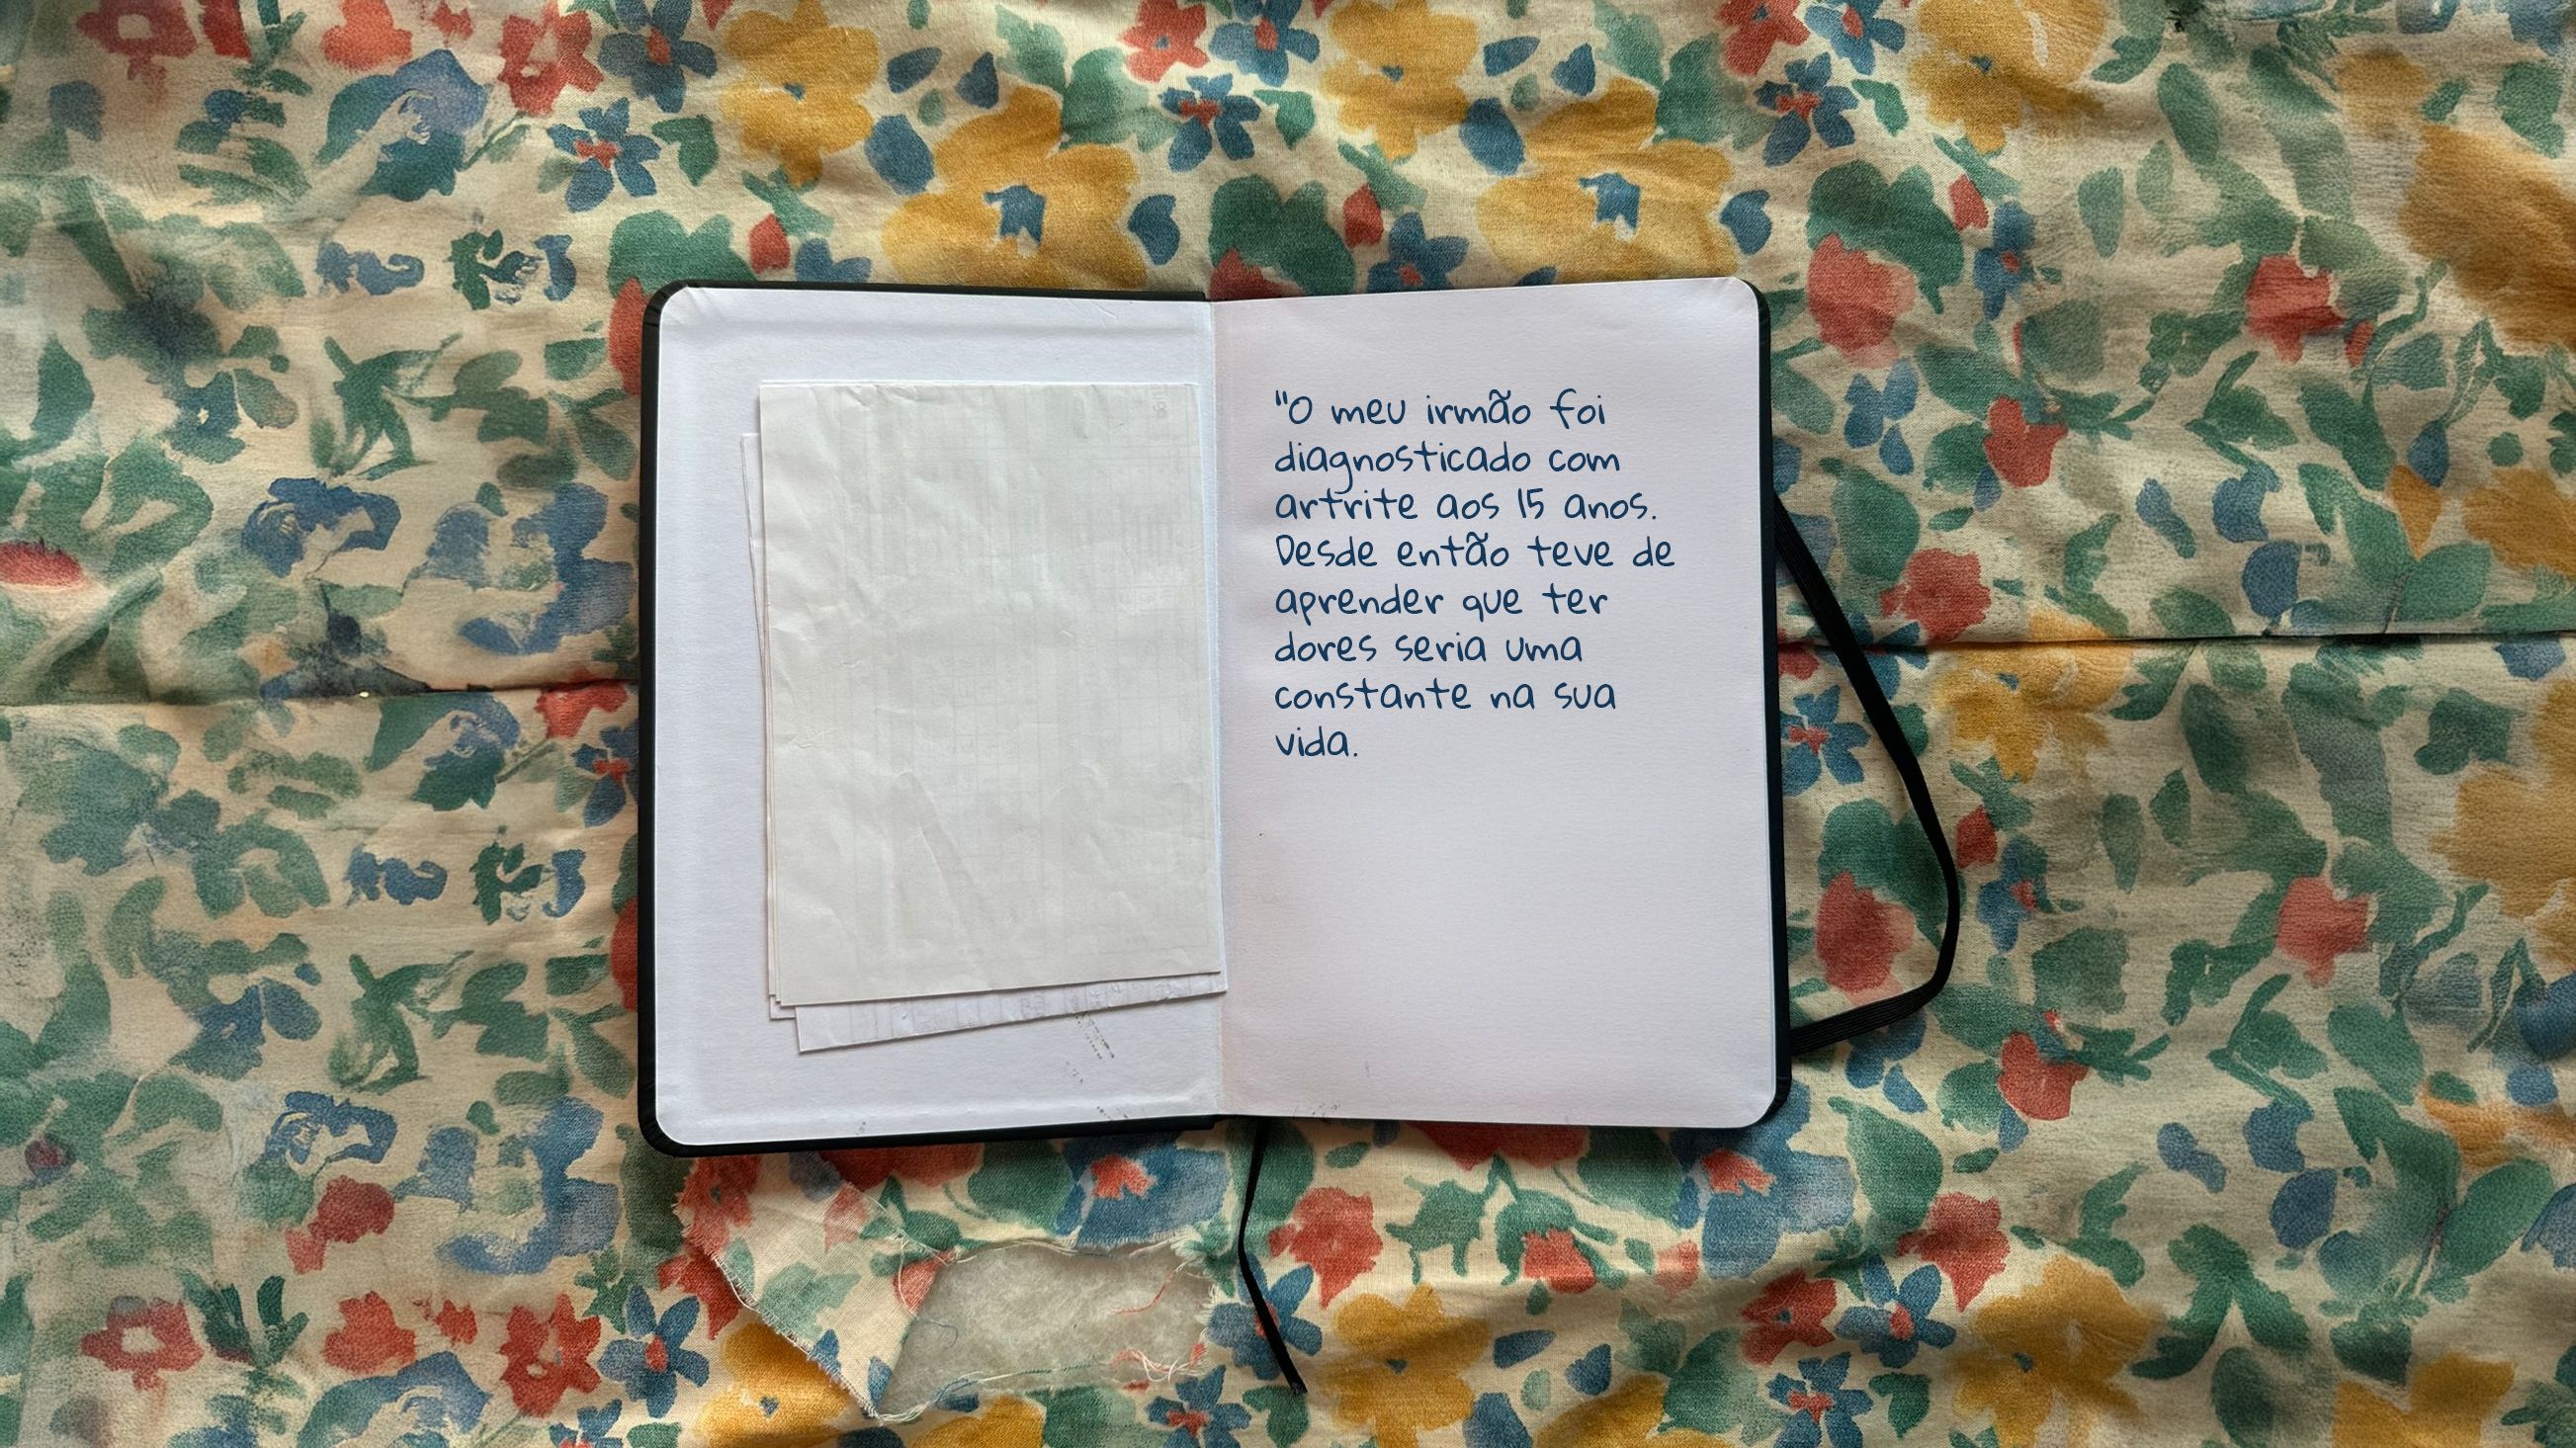 "O meu irmão foi
diagnosticado com
artrite aos 15 anos.
Desde então teve de
aprender que ter
dores seria uma
constante na sua
vida.